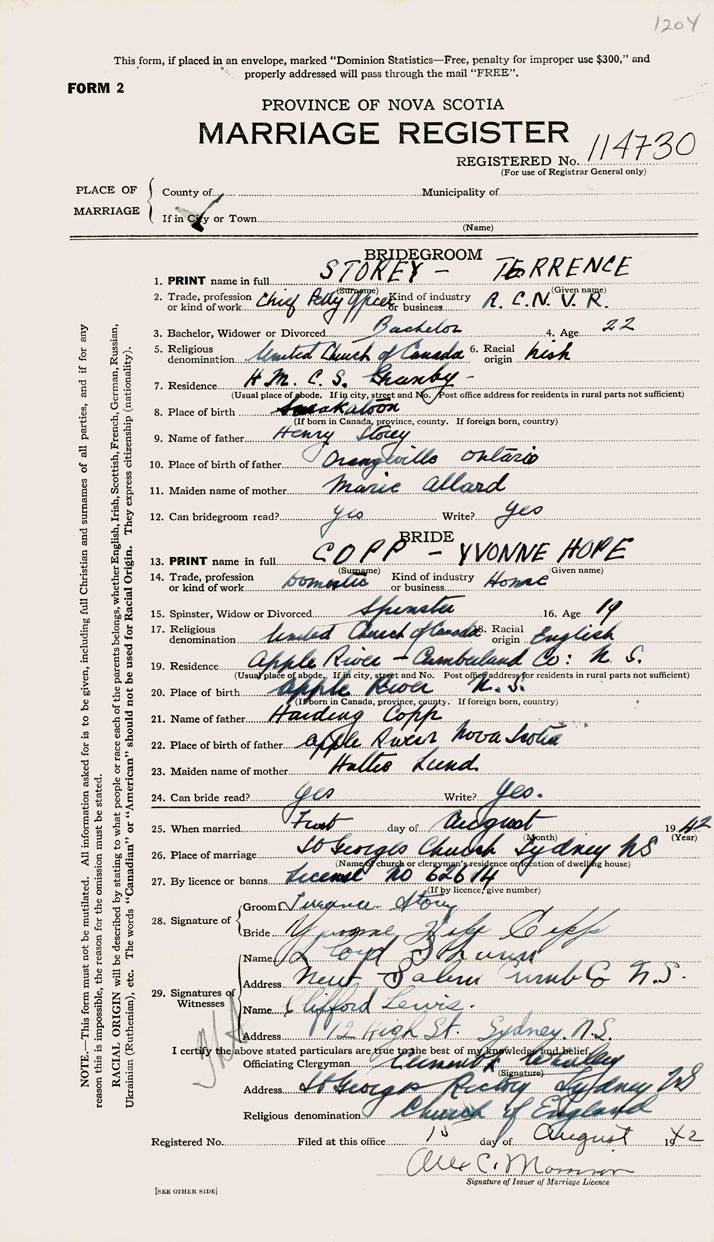 1204
This form, if placed in an envelope, marked "Dominion Statistics—Free, penalty for improper use $300," and
properly addressed will pass through the mail "FREE".
FORM 2
PROVINCE OF NOVA SCOTIA
MARRIAGE REGISTER
REGISTERED No. 114730
(For use of Registrar General only)
PLACE OF MARRIAGE
County of Municipality of
If in City or Town
(Name)
BRIDEGROOM
1. PRINT name in full STOREY - TERRENCE
(Surname) (Given name)
2. Trade, profession or kind of work Chief Petty Officer Kind of industry or business R.C.N.V.R.
3. Bachelor, Widower or Divorced Bachelor 4. Age 22
5. Religious denomination United Church of Canada 6. Racial origin Irish
7. Residence H.M.C.S. Granby -
(Usual place of abode. If in city, street and No. Post office address for residents in rural parts not sufficient)
8. Place of birth Saskatoon
(If born in Canada, province, county. If foreign born, country)
9. Name of father Henry Storey
10. Place of birth of father Orangville Ontario
11. Maiden name of mother Marie Allard
12. Can bridegroom read? yes Write? yes
BRIDE
13. PRINT name in full COPP - YVONNE HOPE
(Surname) (Given name)
14. Trade, profession or kind of work Domestic Kind of industry or business Home
15. Spinster, Widow or Divorced Spinster 16. Age 19
17. Religious denomination United Church of Canada 18. Racial origin English
19. Residence Apple River - Cumberland Co: N.S.
(Usual place of abode. If in city, street and No. Post office address for residents in rural parts not sufficient)
20. Place of birth Apple River N.S.
(If born in Canada, province, county. If foreign born, country)
21. Name of father Harding Copp
22. Place of birth of father Apple River Nova Scotia
23. Maiden name of mother Lund
24. Can bride read? yes Write? yes.
25. When married First day of August 1942
(Month) (Year)
26. Place of marriage St Georges Church Sydney NS
(Name of church or clergyman's residence or location of dwelling house)
27. By licence or banns License no 62614
(If by licence, give number)
28. Signature of
Groom Terrance Storey
Bride Yvonne Hope Copp
29. Signatures of Witnesses
Name Lloyd
Address New Salem Cumb Co N.S.
Name Clifford Lewis.
Address 12 High St. Sydney N.S.
I certify the above stated particulars are true to the best of my knowledge and belief.
Officiating Clergyman
(Signature)
Address St Georges Rectory Sydney NS
Religious denomination Church of England
Registered No. Filed at this office 15 day of August 1942
Alex C.
Signature of Issuer of Marriage Licence
[SEE OTHER SIDE]
NOTE.—This form must not be mutilated. All information asked for is to be given, including full Christian and surnames of all parties, and if for any
reason this is impossible, the reason for the omission must be stated.
RACIAL ORIGIN will be described by stating to what people or race each of the parents belongs, whether English, Irish, Scottish, French, German, Russian,
Ukrainian (Ruthenian), etc. The words "Canadian" or "American" should not be used for Racial Origin. They express citizenship (nationality).